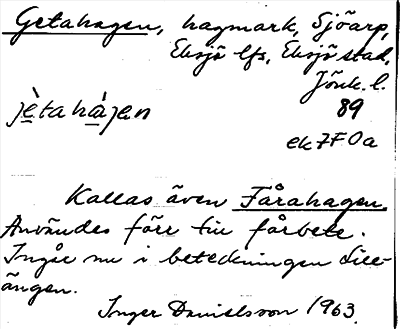 Getahagen, hagmark, Sjöarp,
Eksjö lfs, Eksjö stad,
Jönk. l.
jètahájen 89
ek 7F0a
Kallas även Fårahagen.
Användes förr till fårbete.
Ingår nu i beteckningen Lill-
ängen.
Inger Danielsson 1963.